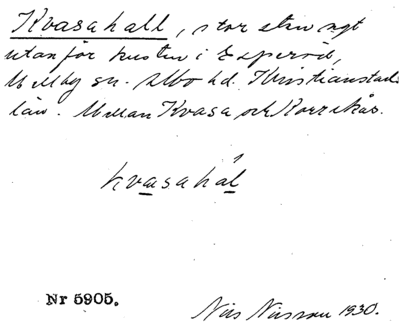 Kvasahall, stor sten ngt
utanför kusten i Esperöd,
Mellby sn. Albo hd. Kristianstads
län. Mellan Kvasa och
kvasahál
Nr 5905.
Nils Nilsson 1930.